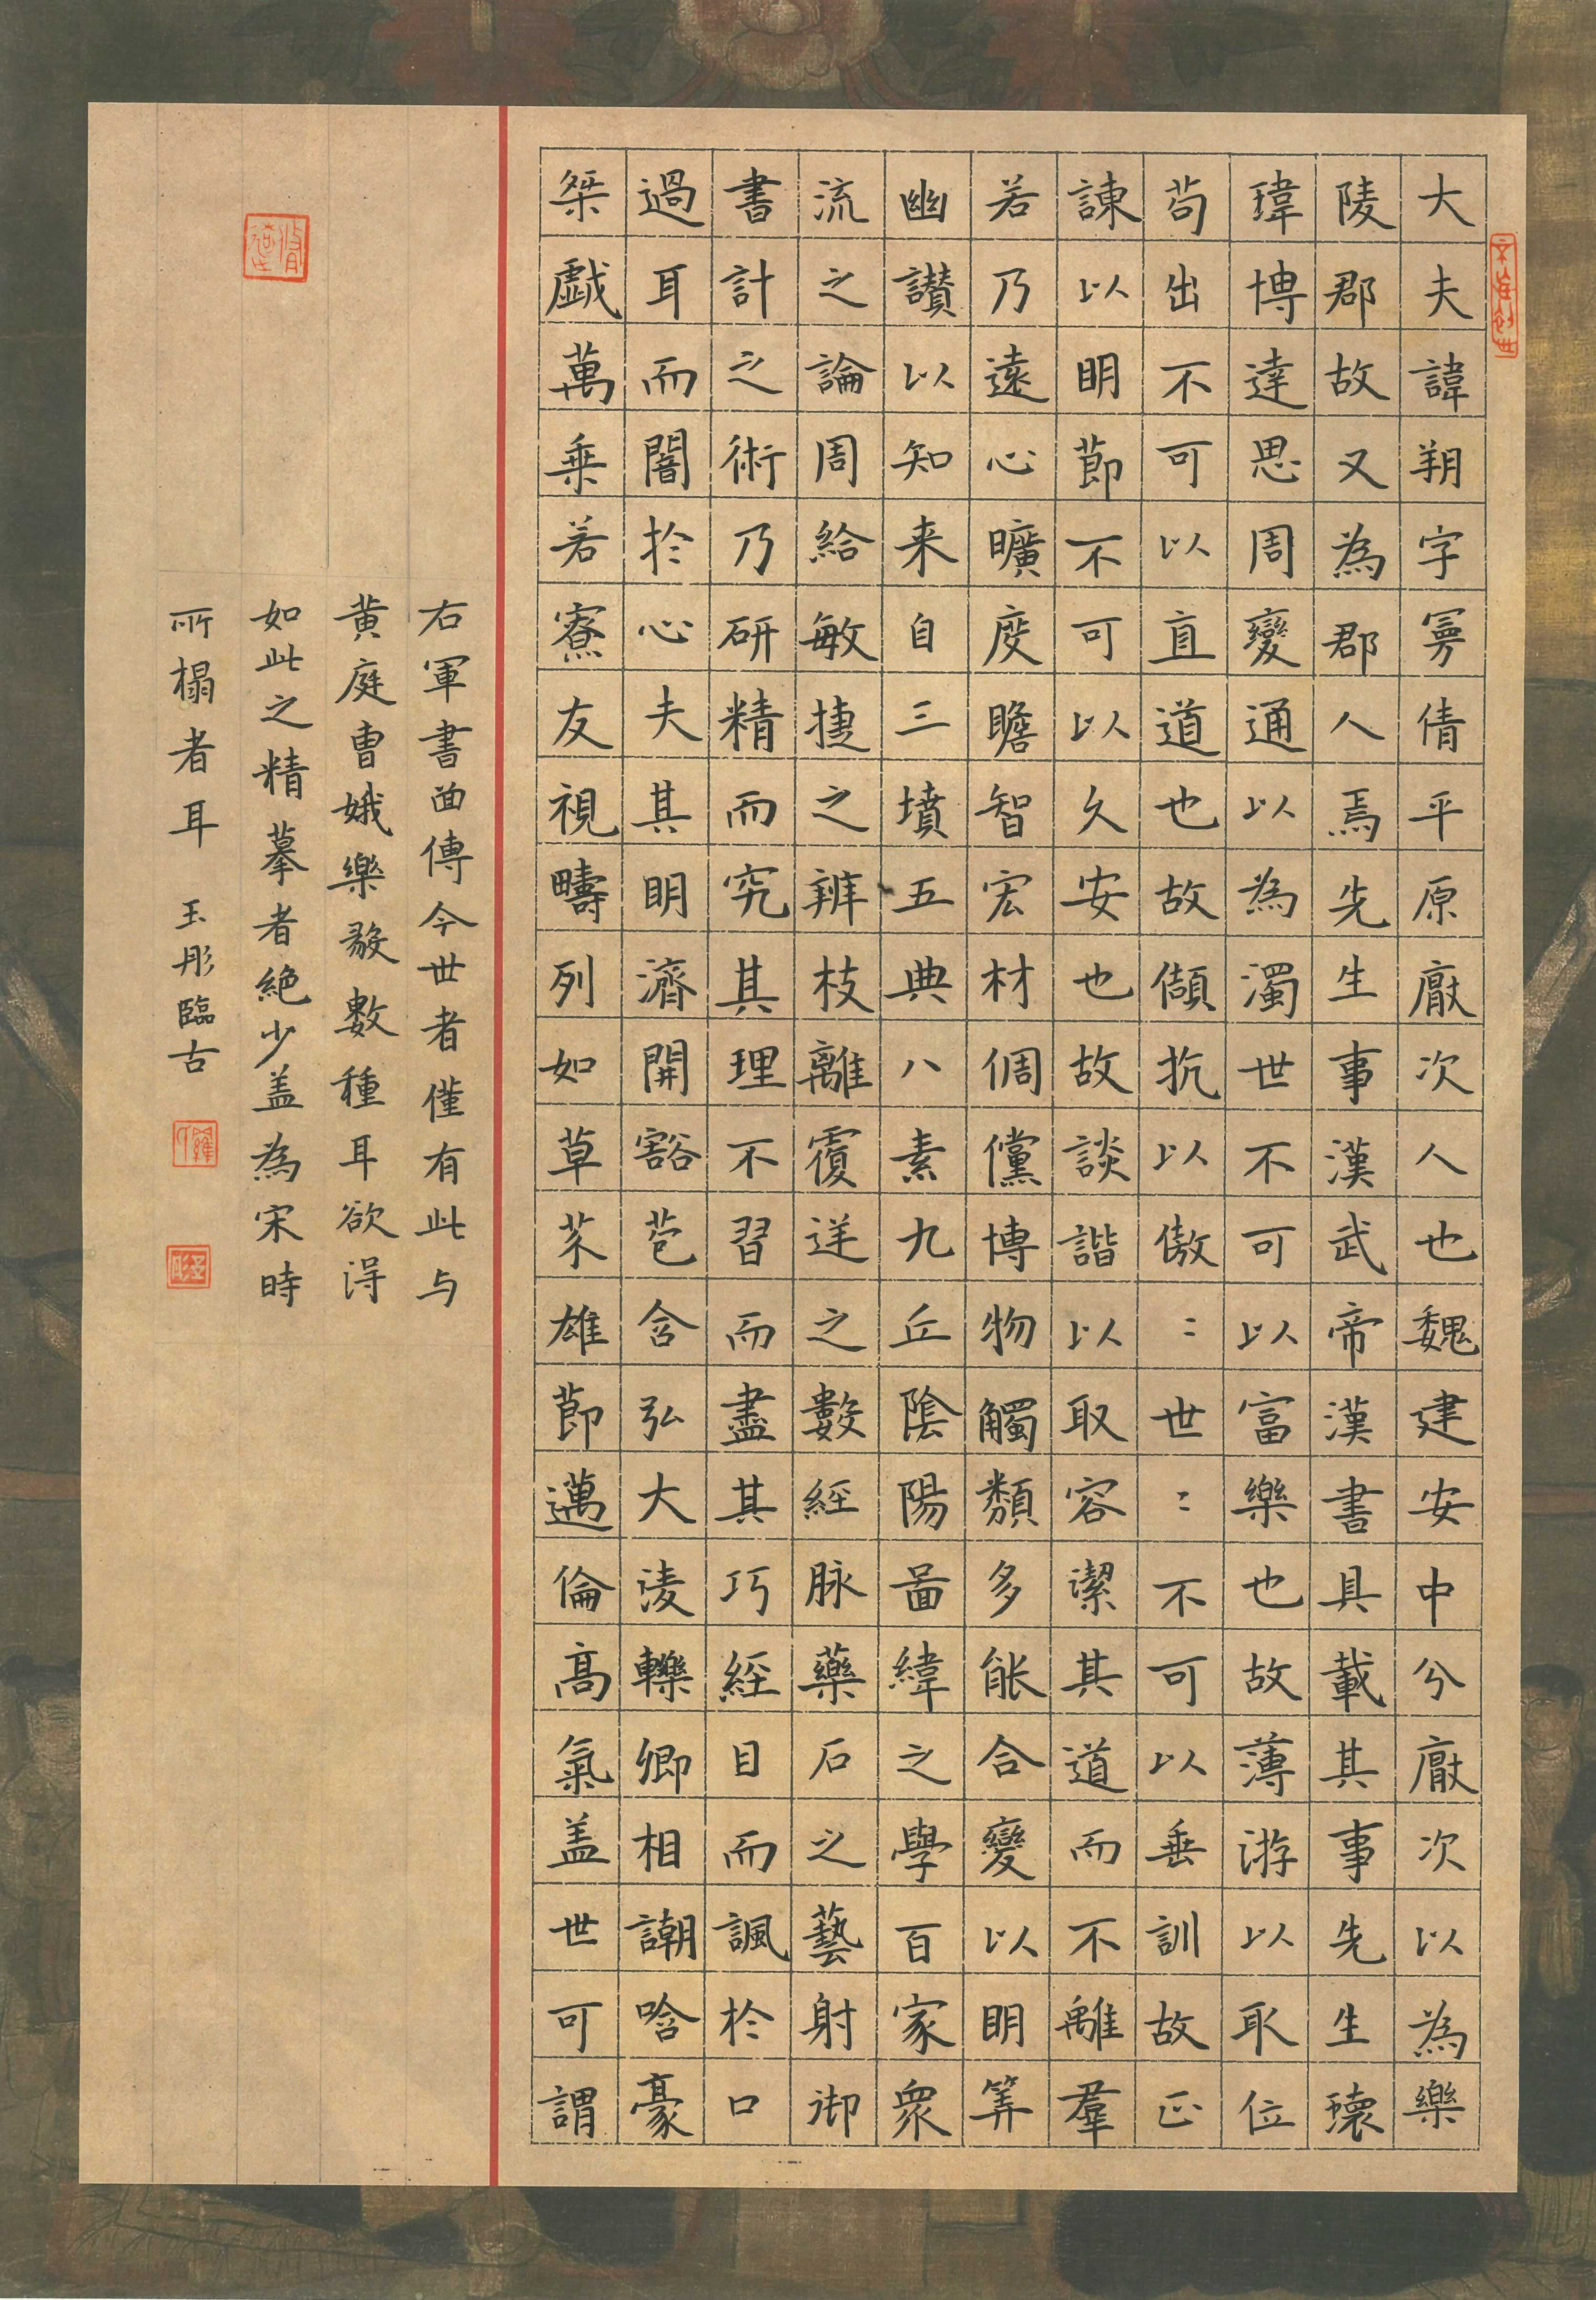 大夫諱朔字曼倩平原厭次人也魏建安中分厭次以為樂
陵郡故又為郡人焉先生事漢武帝漢書具載其事先生瓌
瑋博達思周變通以為濁世不可以富樂也故薄游以取位
苟出不可以直道也故傲抗以傲〻世〻不可以垂訓故正
諫以明節不可以久安也故談諧以取容潔其道而不離羣
若乃遠心曠度贍智宏材倜儻博物觸類多能合變以明筭
幽讃以知来自三墳五典八素九丘陰陽啚緯之學百家衆
流之論周給敏捷之辨枝離覆逆之數經脉藥石之藝射御
書計之術乃研精而究其理不習而盡其巧經目而諷於口
過耳而闇於心夫其明濟開豁苞含弘大淩轢卿相謿哈豪
桀戯萬乗若寮友視疇列如草芥雄節邁倫高氣盖世可謂
右軍書面傳今世者僅有此与
黄庭曹娥樂毅數種耳欲得
如此之精摹者絶少盖為宋時
所榻者耳 玉彤臨古